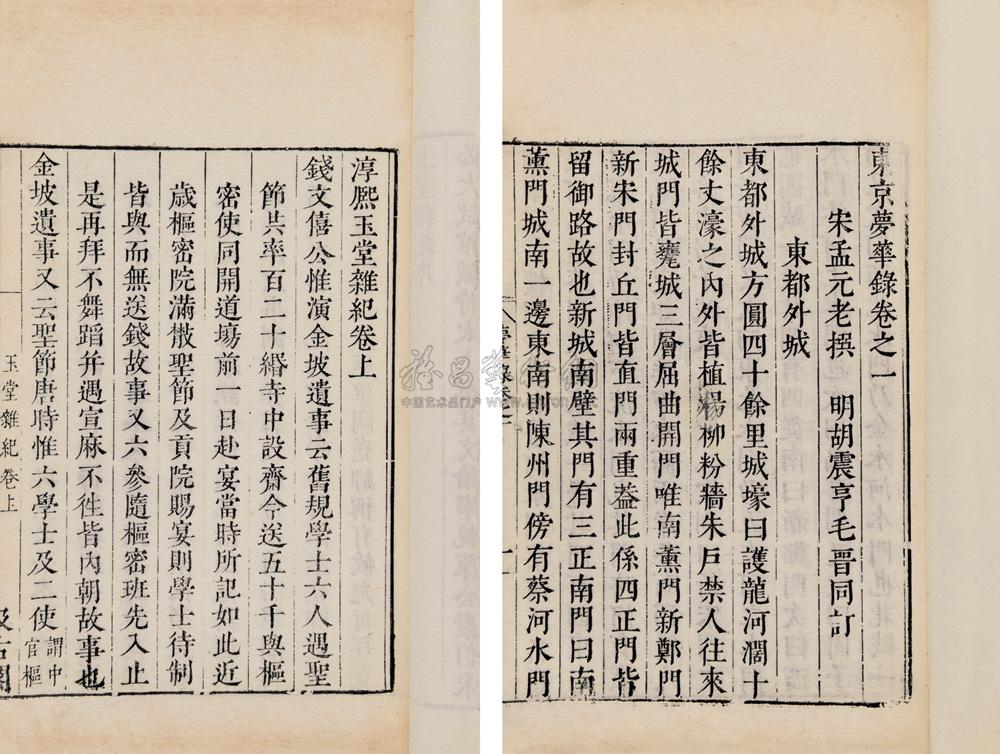 東京夢華錄卷之一
宋孟元老撰 明胡震亨毛晉同訂
東都外城
東都外城方圓四十餘里城壕曰護龍河濶十
餘丈濠之內外皆植楊柳粉牆朱戶禁人往來
城門皆甕城三層屈曲開門唯南薰門新鄭門
新宋門封丘門皆直門兩重葢此係四正門皆
留御路故也新城南壁其門有三正南門曰南
薰門城南一邊東南則陳州門傍有蔡河水門
淳熈玉堂雜紀卷上
錢文僖公惟演金坡遺事云舊規學士六人遇聖
節共率百二十緡寺中設齋今送五十千與樞
密使同開道場前一日赴宴當時所記如此近
歲樞密院滿散聖節及貢院賜宴則學士待制
皆與而無送錢故事又六參隨樞密班先入止
是再拜不舞蹈并遇宣麻不徃皆內朝故事也
金坡遺事又云聖節唐時惟六學士及二使謂中官樞
玉堂雜紀卷上
汲古閣
中国艺术品门户